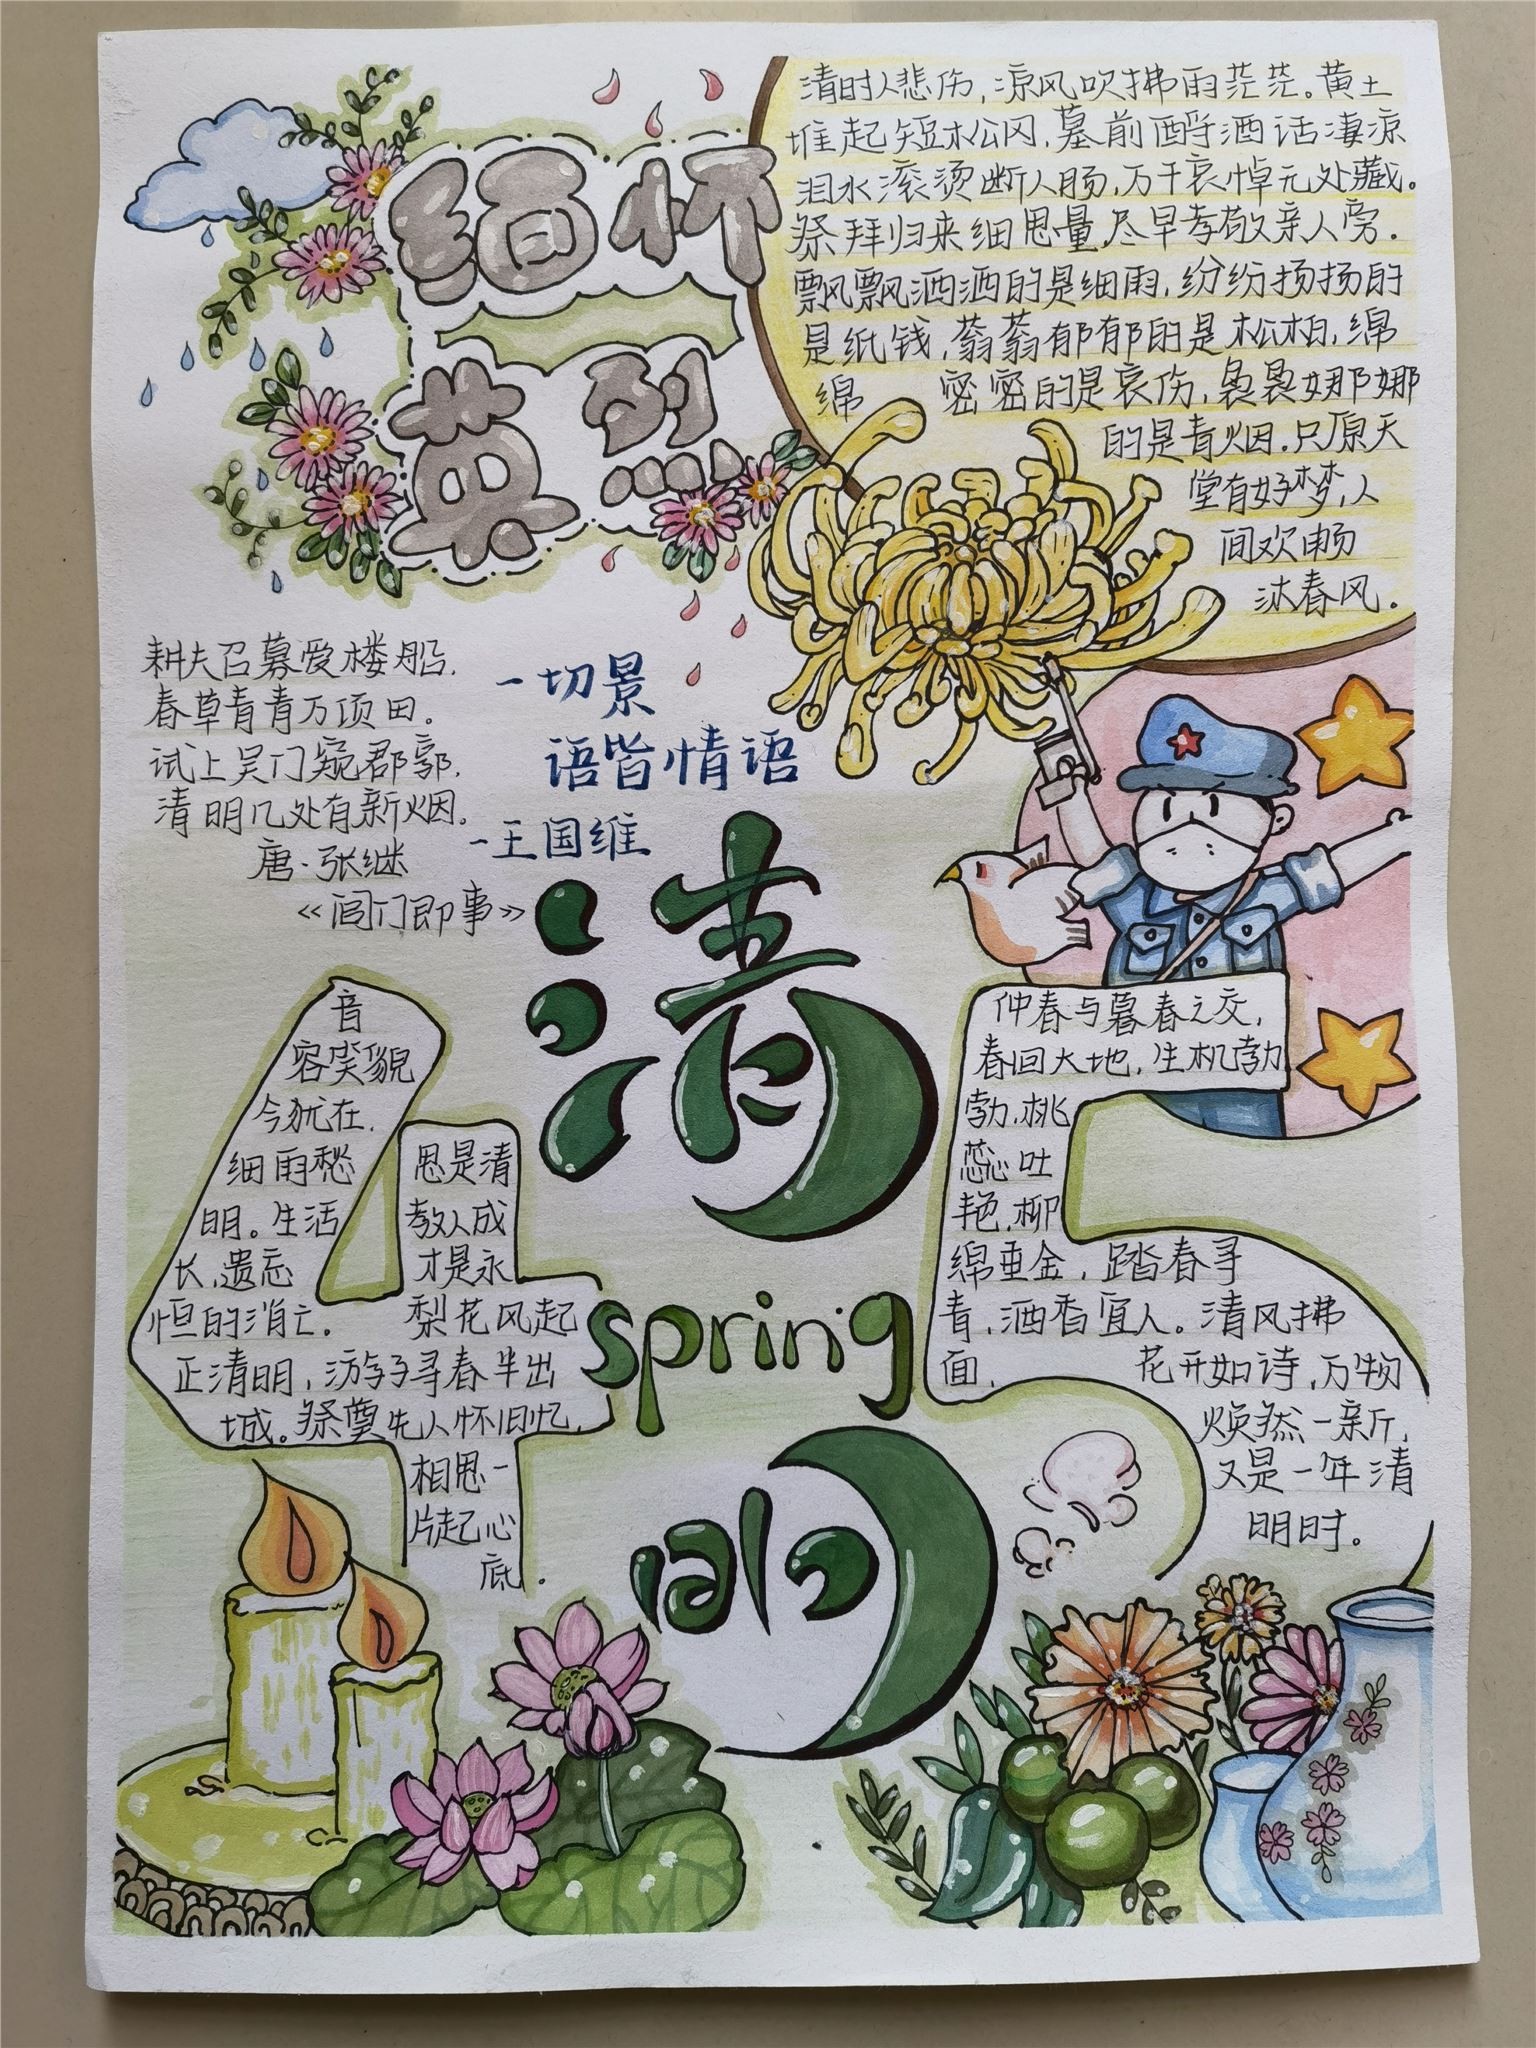 缅怀
英烈
清时人悲伤，凉风吹拂雨茫茫。黄土
堆起短松冈，墓前酹洒话凄凉
泪水滚烫断人肠，万千哀悼无处藏。
祭拜归来细思量，尽早孝敬亲人旁。
飘飘洒洒的是细雨，纷纷扬扬的
是纸钱，蓊蓊郁郁的是松柏，绵
绵 密密的是哀伤，袅袅娜娜
的是青烟。只原天
堂有好梦，人
间欢畅
沐春风。
耕夫召募爱楼船，
春草青青万项田。
试上吴门窥郡郭，
清明几处有新烟。
唐·张继
《阊门即事》
一切景
语皆情语
-王国维
清
spring
明
音
容笑貌
今犹在，
细雨愁
明。生活
长，遗忘
恒的消亡。
思是清
教人成
才是永
梨花风起
正清明，游子寻春半出
城。祭奠先人怀旧忆，
相思一
片起心
底。
仲春与暮春之交，
春回大地，生机勃
勃，桃
蕊吐
艳，柳
绵垂金，踏春寻
青，洒香宜人。清风拂
面， 花开如诗，万物
焕然一新，
又是一年清
明时。